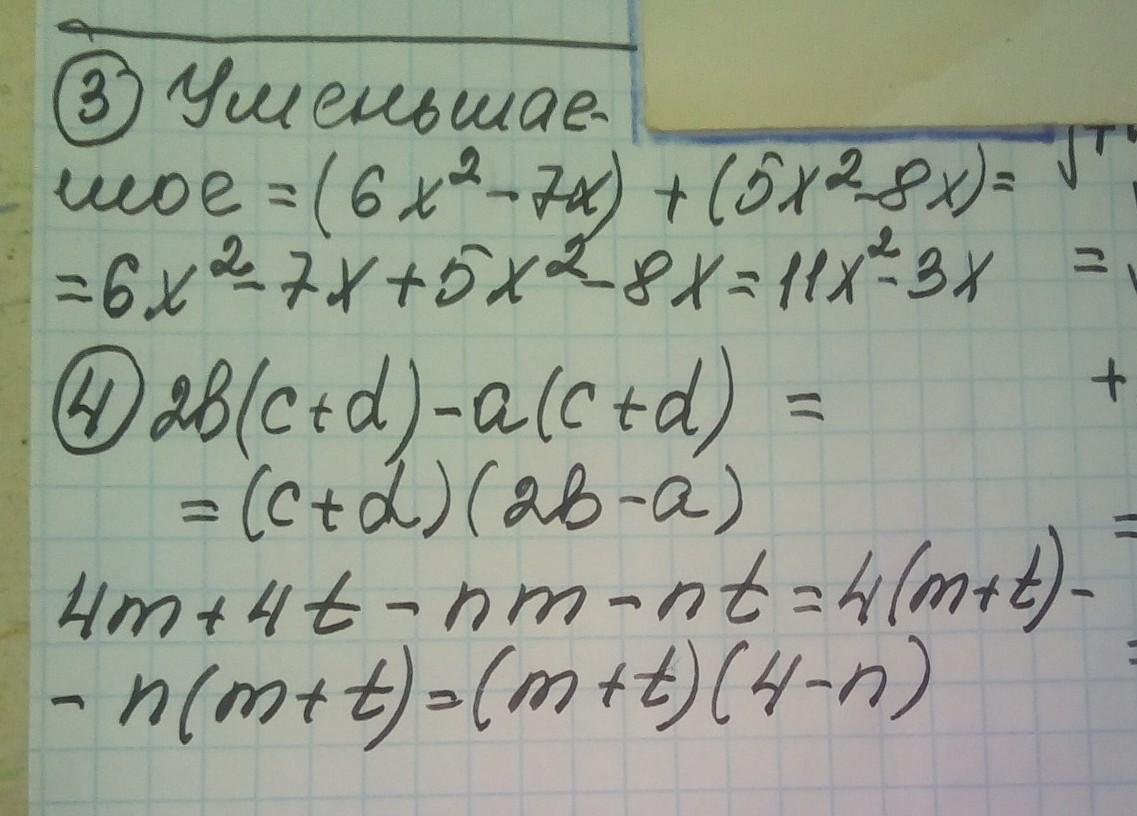 ③ Уменьшае-
мое = (6x² - 7x) + (5x² - 8x) =
= 6x² - 7x + 5x² - 8x = 11x² - 3x
④ 2b(c + d) - a(c + d) =
= (c + d)(2b - a)
4m + 4t - nm - nt = 4(m + t) -
- n(m + t) = (m + t)(4 - n)
=
+
=
=